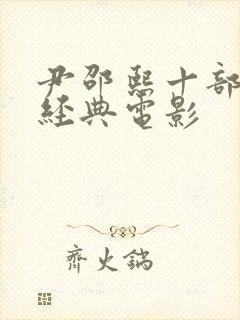 尹邵熙十部
經典電影
齊火鍋